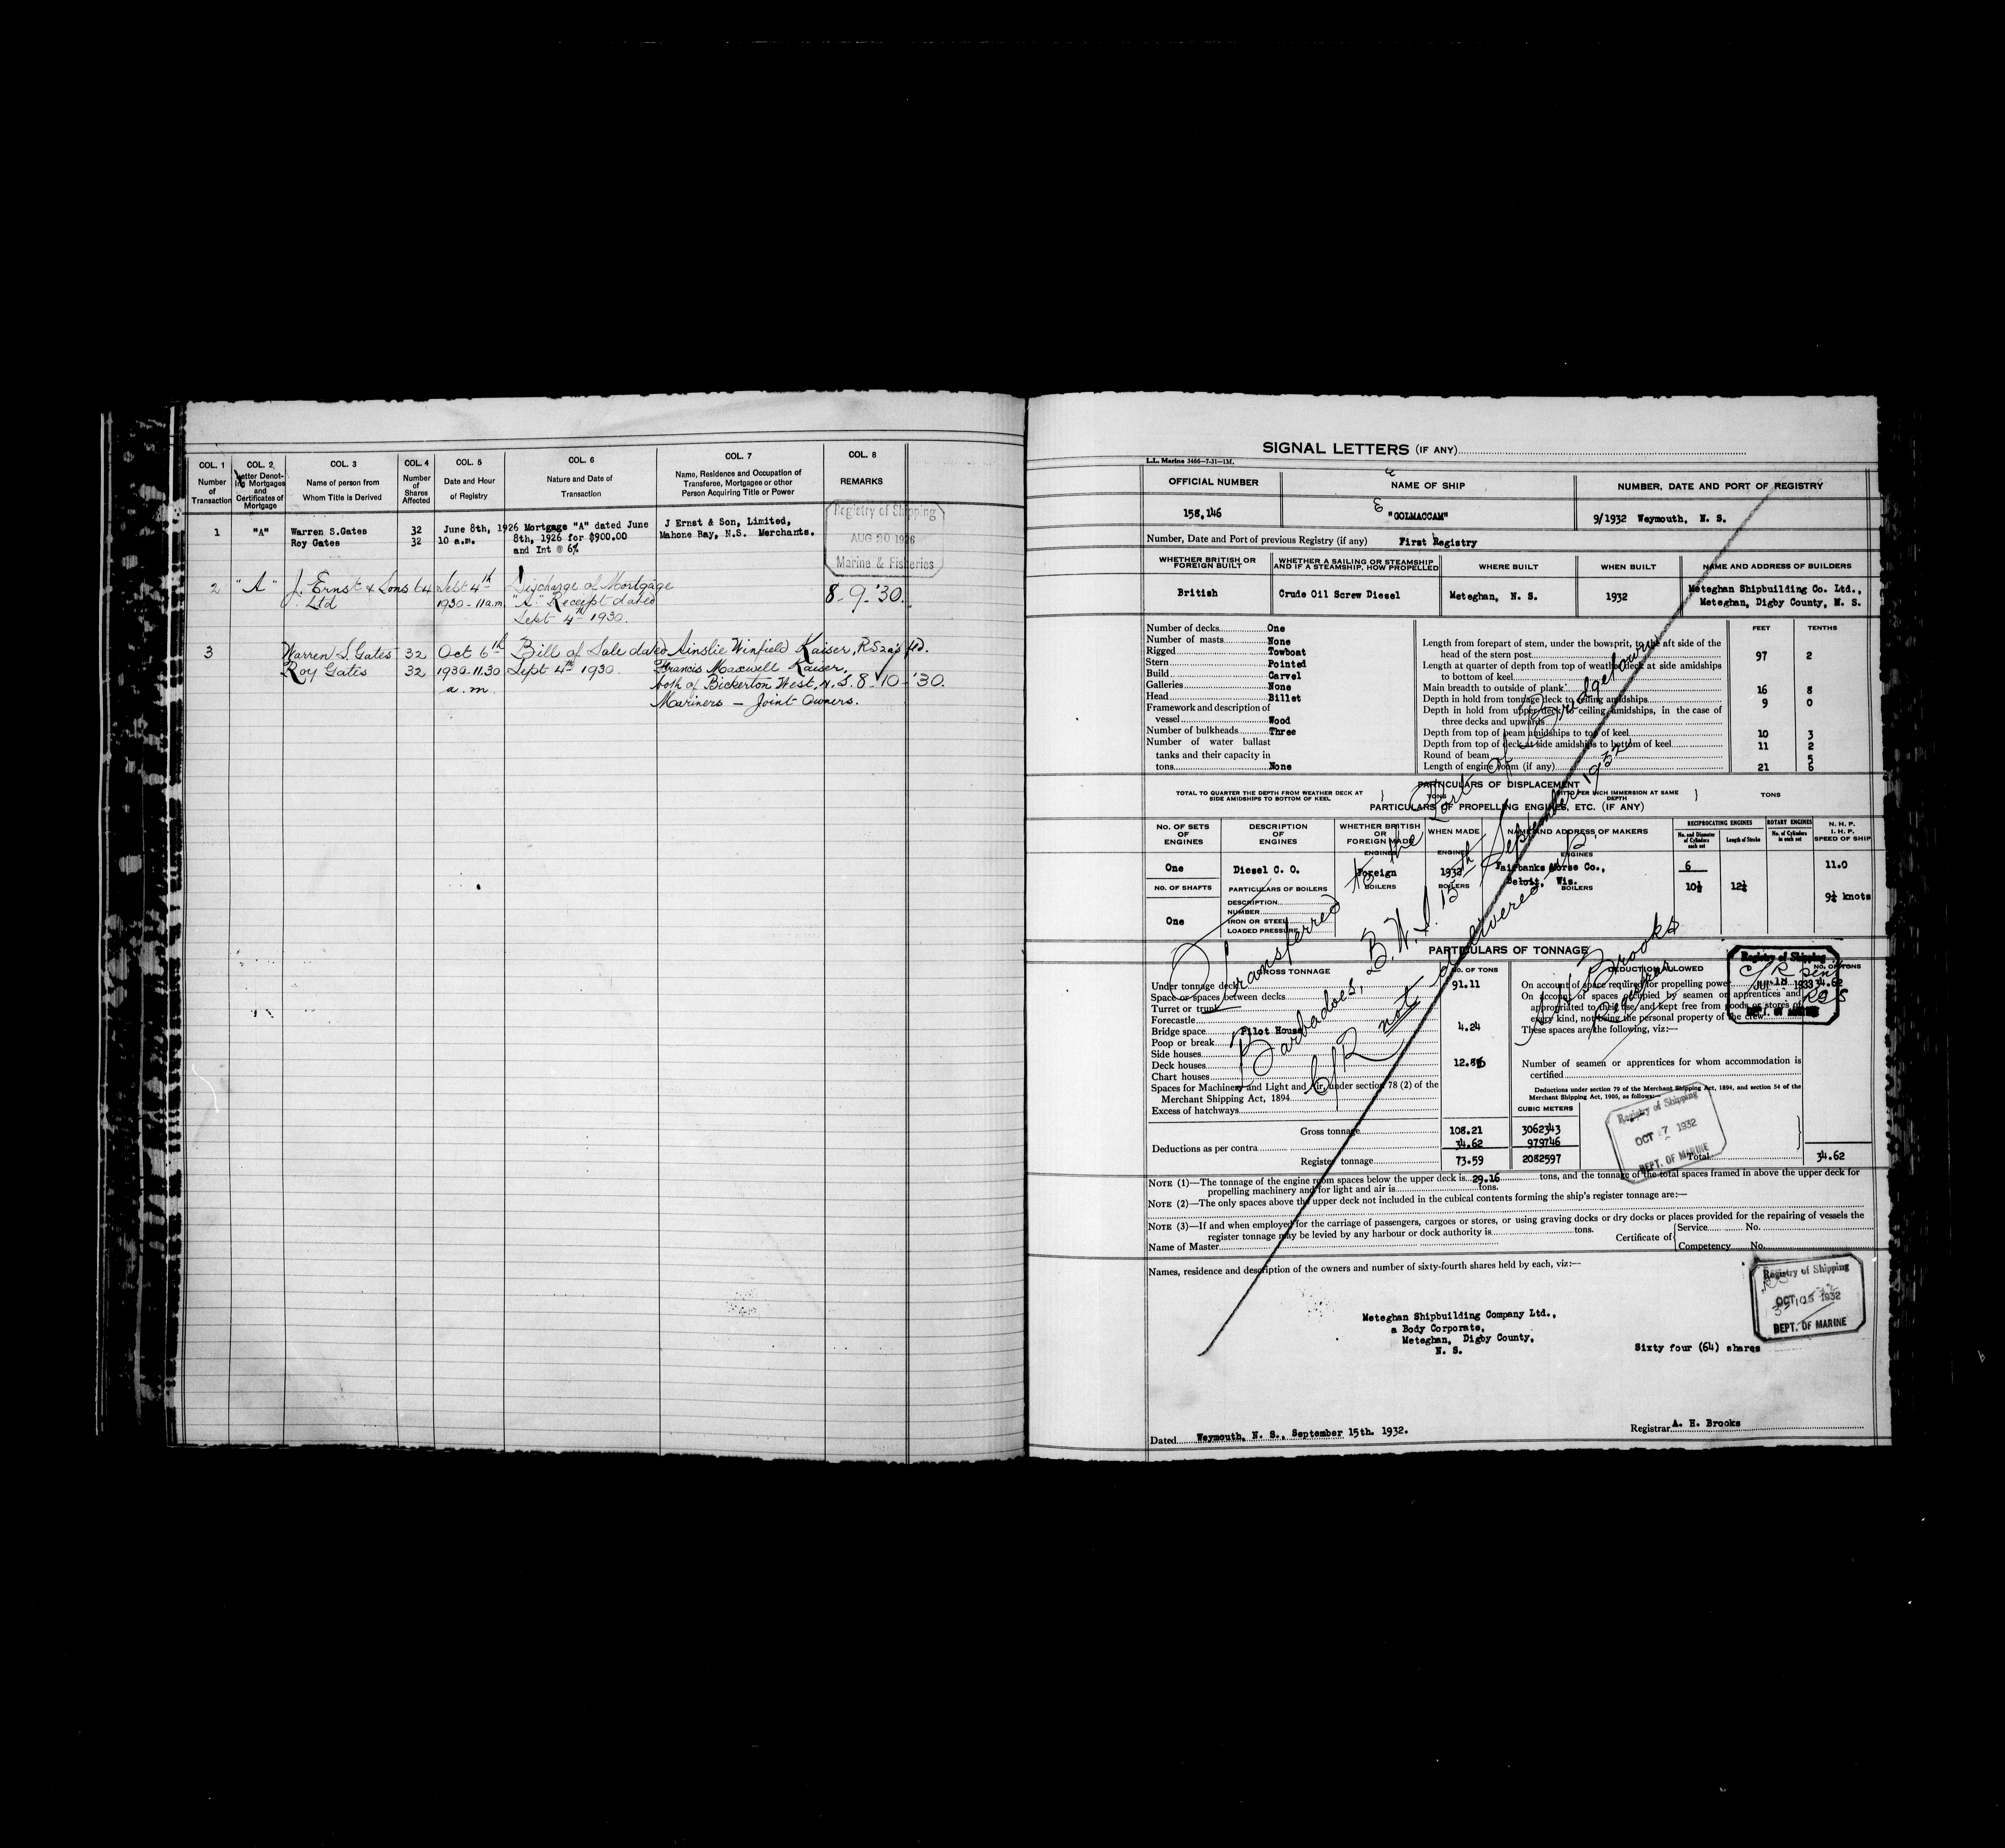 COL. 1 COL. 2 COL. 3 COL. 4 COL. 5 COL. 6 COL. 7 COL. 8
Number of Transaction
Letter Denoting Mortgages and Certificates of Mortgage
Name of person from Whom Title is Derived
Number of Shares Affected
Date and Hour of Registry
Nature and Date of Transaction
Name, Residence and Occupation of Transferee, Mortgagee or other Person Acquiring Title or Power
REMARKS
1 "A" Warren S.Gates 32 June 8th, 1926 Mortgage "A" dated June J Ernst & Son, Limited,
Roy Gates 32 10 a.m. 8th, 1926 for $900.00 Mahone Bay, N.S. Merchants.
and Int @ 6%
Registry of Shipping
AUG 20 1926
Marine & Fisheries
2 "A" J. Ernst & Sons 64 Sept 4th Discharge of Mortgage
Ltd 1930 - 11 a.m "A" Receipt dated 8-9-'30.
Sept 4th 1930.
3 Warren S. Gates 32 Oct 6th Bill of Sale dated Ainslie Winfield Kaiser,
Roy Gates 32 1930-11.30 Sept 4th 1930 Francis Maxwell Kaiser,
a.m. both of Bickerton West, N.S. 8-10-'30.
Mariners — Joint Owners.
SIGNAL LETTERS (IF ANY)
L.L. Marine 3466-7-31-1M.
OFFICIAL NUMBER NAME OF SHIP NUMBER, DATE AND PORT OF REGISTRY
158,146 "GOLMACCAM" 9/1932 Weymouth, N. S.
Number, Date and Port of previous Registry (if any) First Registry
WHETHER BRITISH OR FOREIGN BUILT
WHETHER A SAILING OR STEAMSHIP AND IF A STEAMSHIP, HOW PROPELLED
WHERE BUILT
WHEN BUILT
NAME AND ADDRESS OF BUILDERS
British Crude Oil Screw Diesel Meteghan, N. S. 1932 Meteghan Shipbuilding Co. Ltd.,
Meteghan, Digby County, N. S.
FEET TENTHS
Number of decks One
Number of masts None
Rigged Towboat
Stern Pointed
Build Carvel
Galleries None
Head Billet
Framework and description of
vessel Wood
Number of bulkheads Three
Number of water ballast
tanks and their capacity in
tons None
Length from forepart of stem, under the bowsprit, to the aft side of the
head of the stern post 97 2
Length at quarter of depth from top of weather deck at side amidships
to bottom of keel
Main breadth to outside of plank 16 8
Depth in hold from tonnage deck to ceiling amidships 9 0
Depth in hold from upper deck to ceiling amidships, in the case of
three decks and upwards
Depth from top of beam amidships to top of keel 10 3
Depth from top of deck at side amidships to bottom of keel 11 2
Round of beam 5
Length of engine room (if any) 21 6
PARTICULARS OF DISPLACEMENT
TOTAL TO QUARTER THE DEPTH FROM WEATHER DECK AT SIDE AMIDSHIPS TO BOTTOM OF KEEL } TONS DITTO PER INCH IMMERSION AT SAME DEPTH } TONS
PARTICULARS OF PROPELLING ENGINES, ETC. (IF ANY)
NO. OF SETS OF ENGINES
DESCRIPTION OF ENGINES
WHETHER BRITISH OR FOREIGN MADE
WHEN MADE
NAME AND ADDRESS OF MAKERS
RECIPROCATING ENGINES
No. and Diameter of Cylinders each set
Length of Stroke
ROTARY ENGINES
No. of Cylinders in each set
N. H. P.
I. H. P.
SPEED OF SHIP
ENGINES ENGINES ENGINES
One Diesel C. O. Foreign 1932 Fairbanks Morse Co., 6 11.0
Beloit, Wis. 10½ 12½
NO. OF SHAFTS PARTICULARS OF BOILERS BOILERS BOILERS BOILERS
9½ knots
DESCRIPTION
NUMBER
One IRON OR STEEL
LOADED PRESSURE
PARTICULARS OF TONNAGE
GROSS TONNAGE NO. OF TONS DEDUCTION ALLOWED NO. OF TONS
Under tonnage deck 91.11
Space or spaces between decks
Turret or trunk
Forecastle
Bridge space Pilot House 4.24
Poop or break
Side houses
Deck houses 12.86
Chart houses
Spaces for Machinery and Light and Air, under section 78 (2) of the
Merchant Shipping Act, 1894
Excess of hatchways
On account of space required for propelling power 34.62
On account of spaces occupied by seamen or apprentices and
appropriated to their use, and kept free from goods or stores of
every kind, not being the personal property of the crew
These spaces are the following, viz:—
Number of seamen or apprentices for whom accommodation is
certified
Deductions under section 79 of the Merchant Shipping Act, 1894, and section 54 of the
Merchant Shipping Act, 1906, as follows:—
CUBIC METERS
Gross tonnage 108.21 3062343
Deductions as per contra 34.62 979746
Register tonnage 73.59 2082597 Total 34.62
Registry of Shipping
JUL 18 1933
DEPT. OF MARINE
Registry of Shipping
OCT 17 1932
DEPT. OF MARINE
Transferred to the Port of Bridgetown
Barbadoes, B.W.I. 15th September 1932
C/R not delivered up
A H Brooks
Registrar
NOTE (1)—The tonnage of the engine room spaces below the upper deck is 29.16 tons, and the tonnage of the total spaces framed in above the upper deck for
propelling machinery and for light and air is tons.
NOTE (2)—The only spaces above the upper deck not included in the cubical contents forming the ship's register tonnage are:—
NOTE (3)—If and when employed for the carriage of passengers, cargoes or stores, or using graving docks or dry docks or places provided for the repairing of vessels the
register tonnage may be levied by any harbour or dock authority is tons.
Name of Master Certificate of { Service No.
Competency No.
Names, residence and description of the owners and number of sixty-fourth shares held by each, viz:—
Registry of Shipping
OCT 1932
DEPT. OF MARINE
Meteghan Shipbuilding Company Ltd.,
a Body Corporate,
Meteghan, Digby County,
N. S.
Sixty four (64) shares
Dated Weymouth, N. S., September 15th. 1932.
Registrar A. H. Brooks